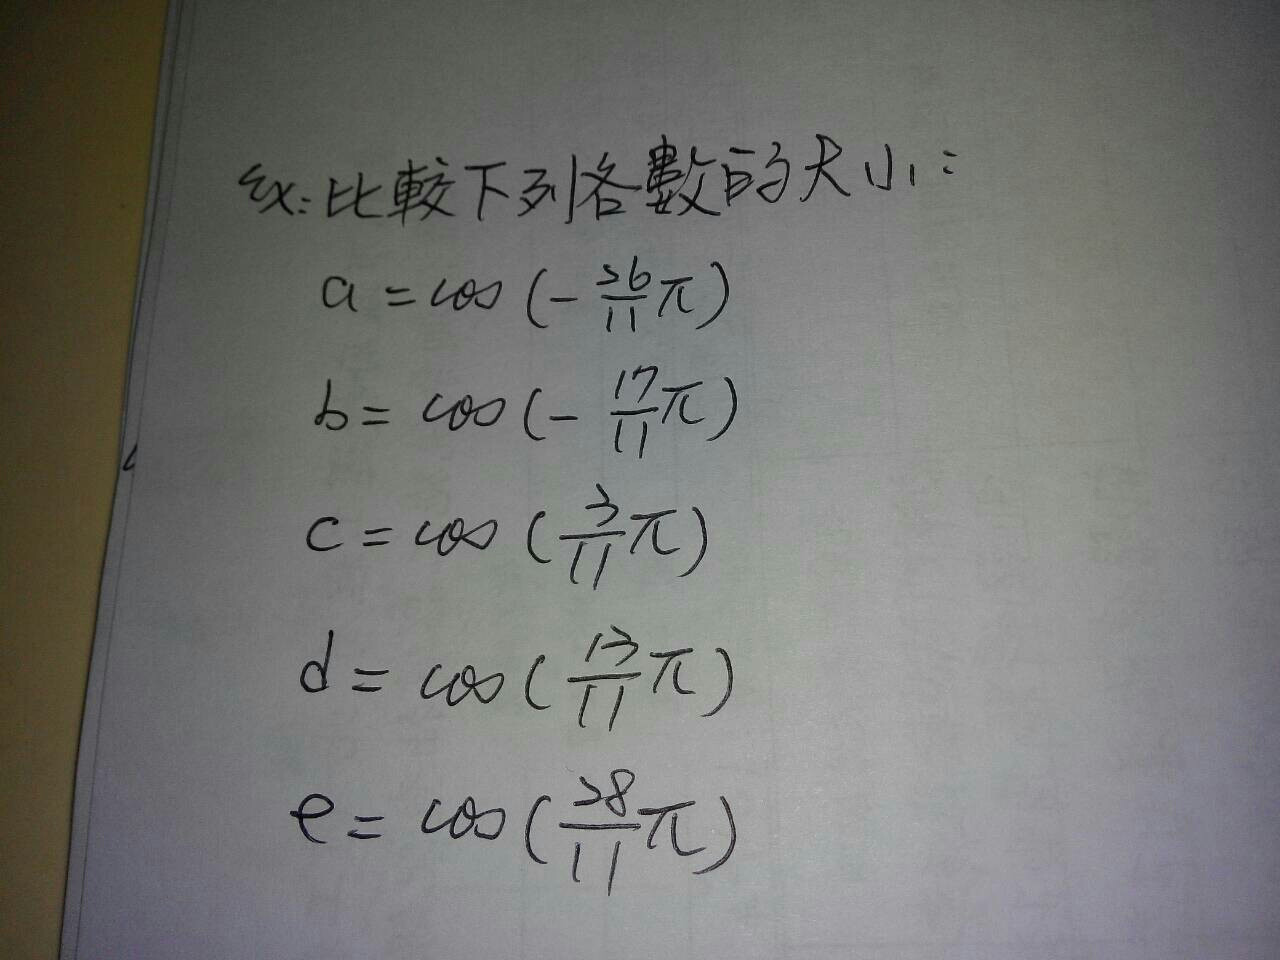 ex: 比較下列各數的大小:
a = cos(-26/11 π)
b = cos(-17/11 π)
c = cos(3/11 π)
d = cos(13/11 π)
e = cos(28/11 π)